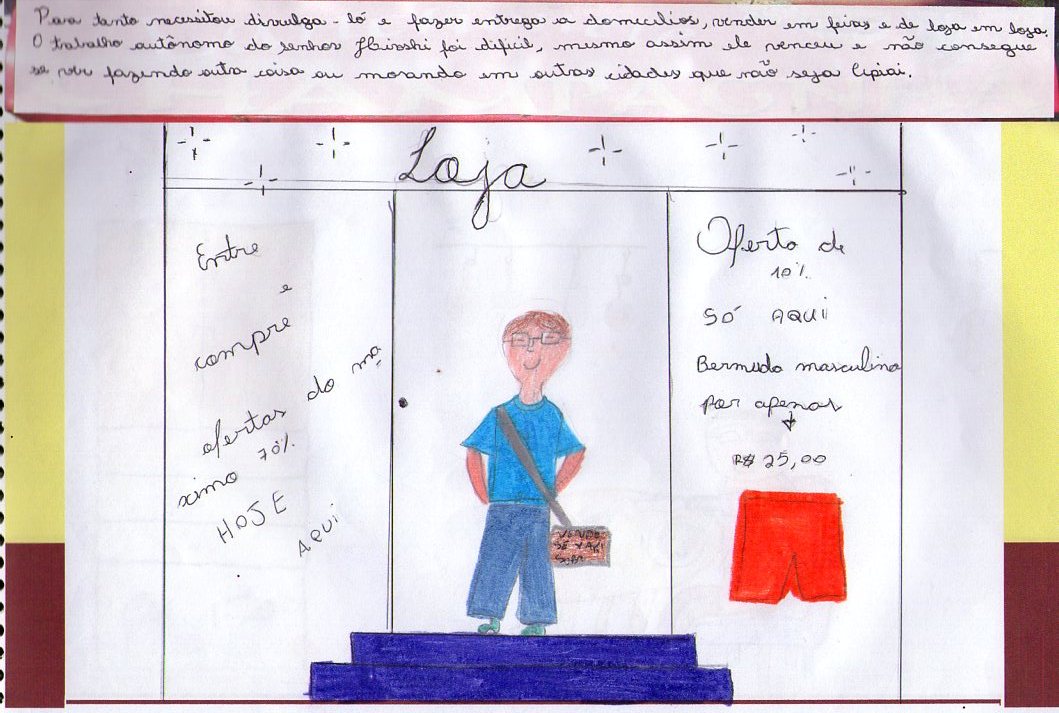 Para tanto necessitou divulga-ló e fazer entrega a domicilios, vender em feiras e de loja em loja.
O trabalho autônomo do senhor Hiroshi foi dificil, mesmo assim ele venceu e não consegue
se ver fazendo outra coisa ou morando em outras cidades que não seja Cipiai.
Loja
Entre
e
compre
ofertas do ma
ximo 70%
HOJE
AQUI
Oferta de
10%
SÓ AQUI
Bermuda masculina
por apenas
R$ 25,00
VENDO